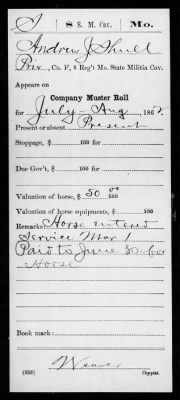 S 8 S. M. Cav. Mo.
Andrew J. Shull
Priv., Co. F, 8 Reg't Mo. State Militia Cav.
Appears on
Company Muster Roll
for July - Aug, 1862.
Present or absent Present
Stoppage, $ 100 for
Due Gov't, $ 100 for
Valuation of horse, $ 50 00/100
Valuation of horse equipments, $ 100
Remarks: Horse entered
Service Mar 1
Paid to June 30 for
Horse
Book mark:
Weaver
(358) Copyist.